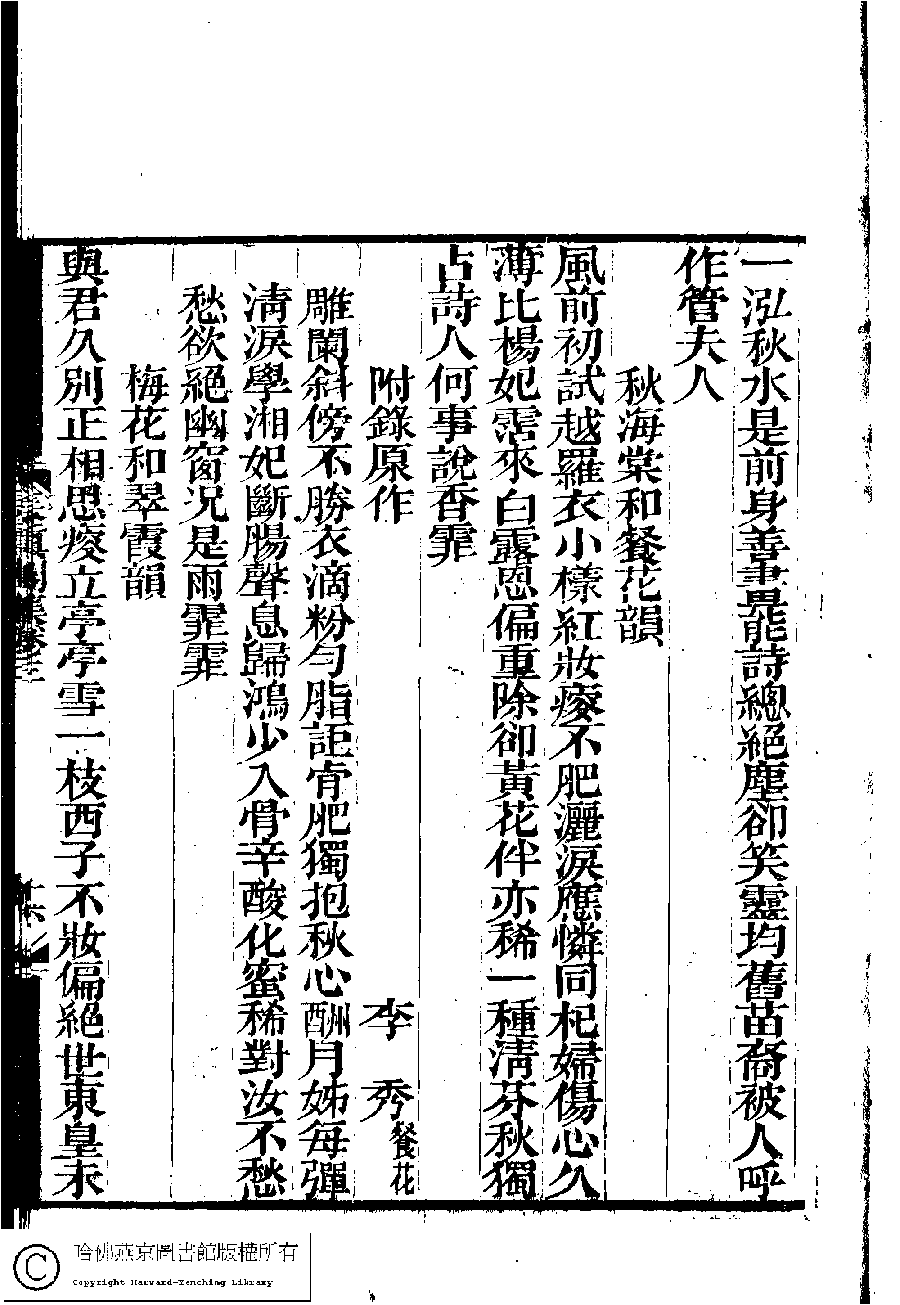 一泓秋水是前身善畫能詩總絕塵卻笑靈均舊苗裔被人呼
作管夫人
秋海棠和餐花韻
風前初試越羅衣小樣紅妝瘦不肥灑淚應憐同杞婦傷心久
薄比楊妃霑來白露恩偏重除卻黃花伴亦稀一種清芬秋獨
占詩人何事說香霏
附錄原作
李秀餐花
雕闌斜傍不勝衣滴粉勻脂詎肯肥獨抱秋心酬月姊每彈
清淚學湘妃斷腸聲息歸鴻少入骨辛酸化蜜稀對汝不愁
愁欲絕幽窗況是雨霏霏
梅花和翠霞韻
與君久別正相思瘦立亭亭雪一枝西子不妝偏絕世東皇未
集卷三
十六
哈佛燕京圖書館版權所有
Copyright Harvard-Yenching Library